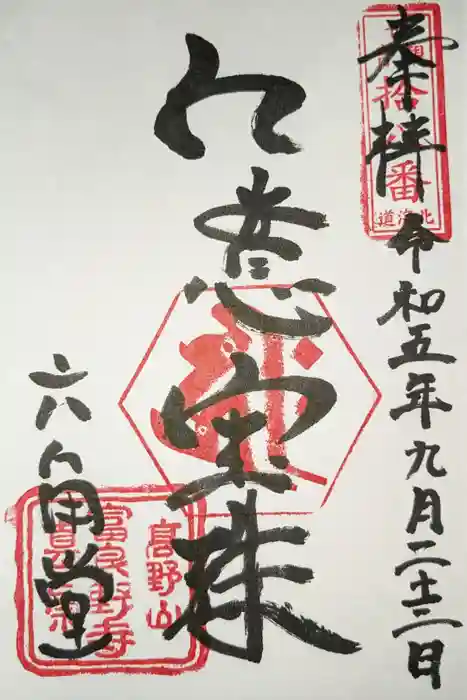 奉拝 令和五年九月二十三日
番
北海道
如意宝珠
六角堂
高野山
富良野寺